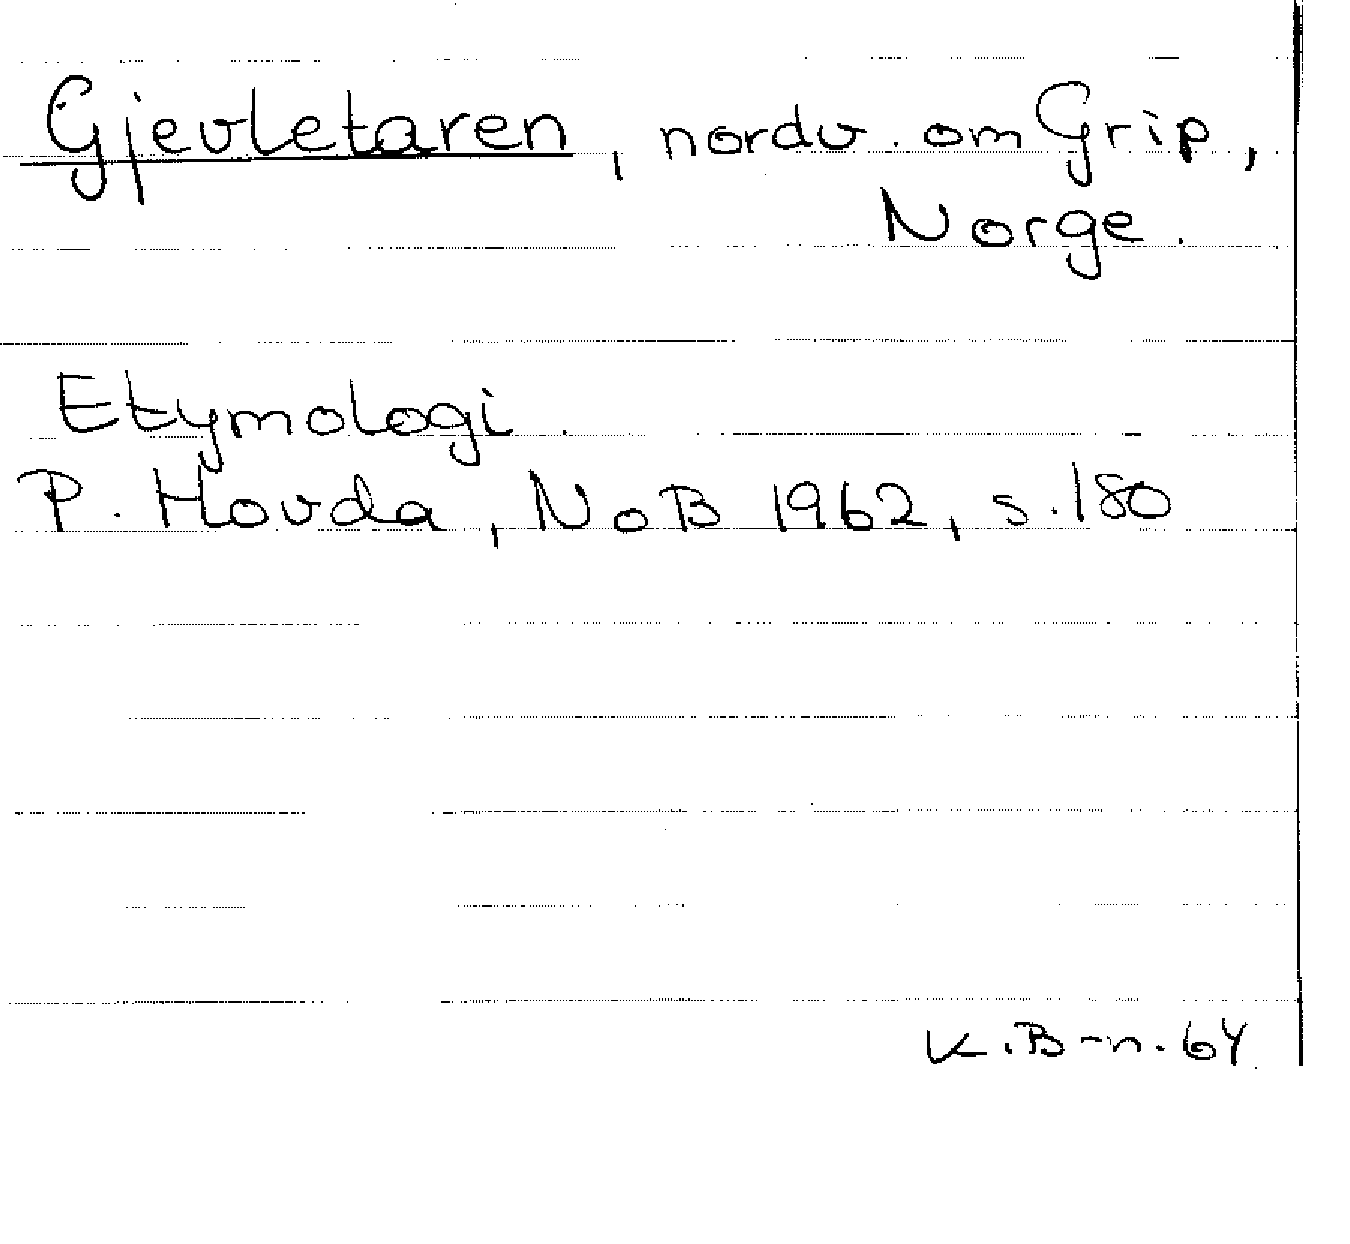 Gjevletaren, nordv. om Grip,
Norge.
Etymologi.
P. Hovda, NoB 1962, s. 180
K.B-n. 64